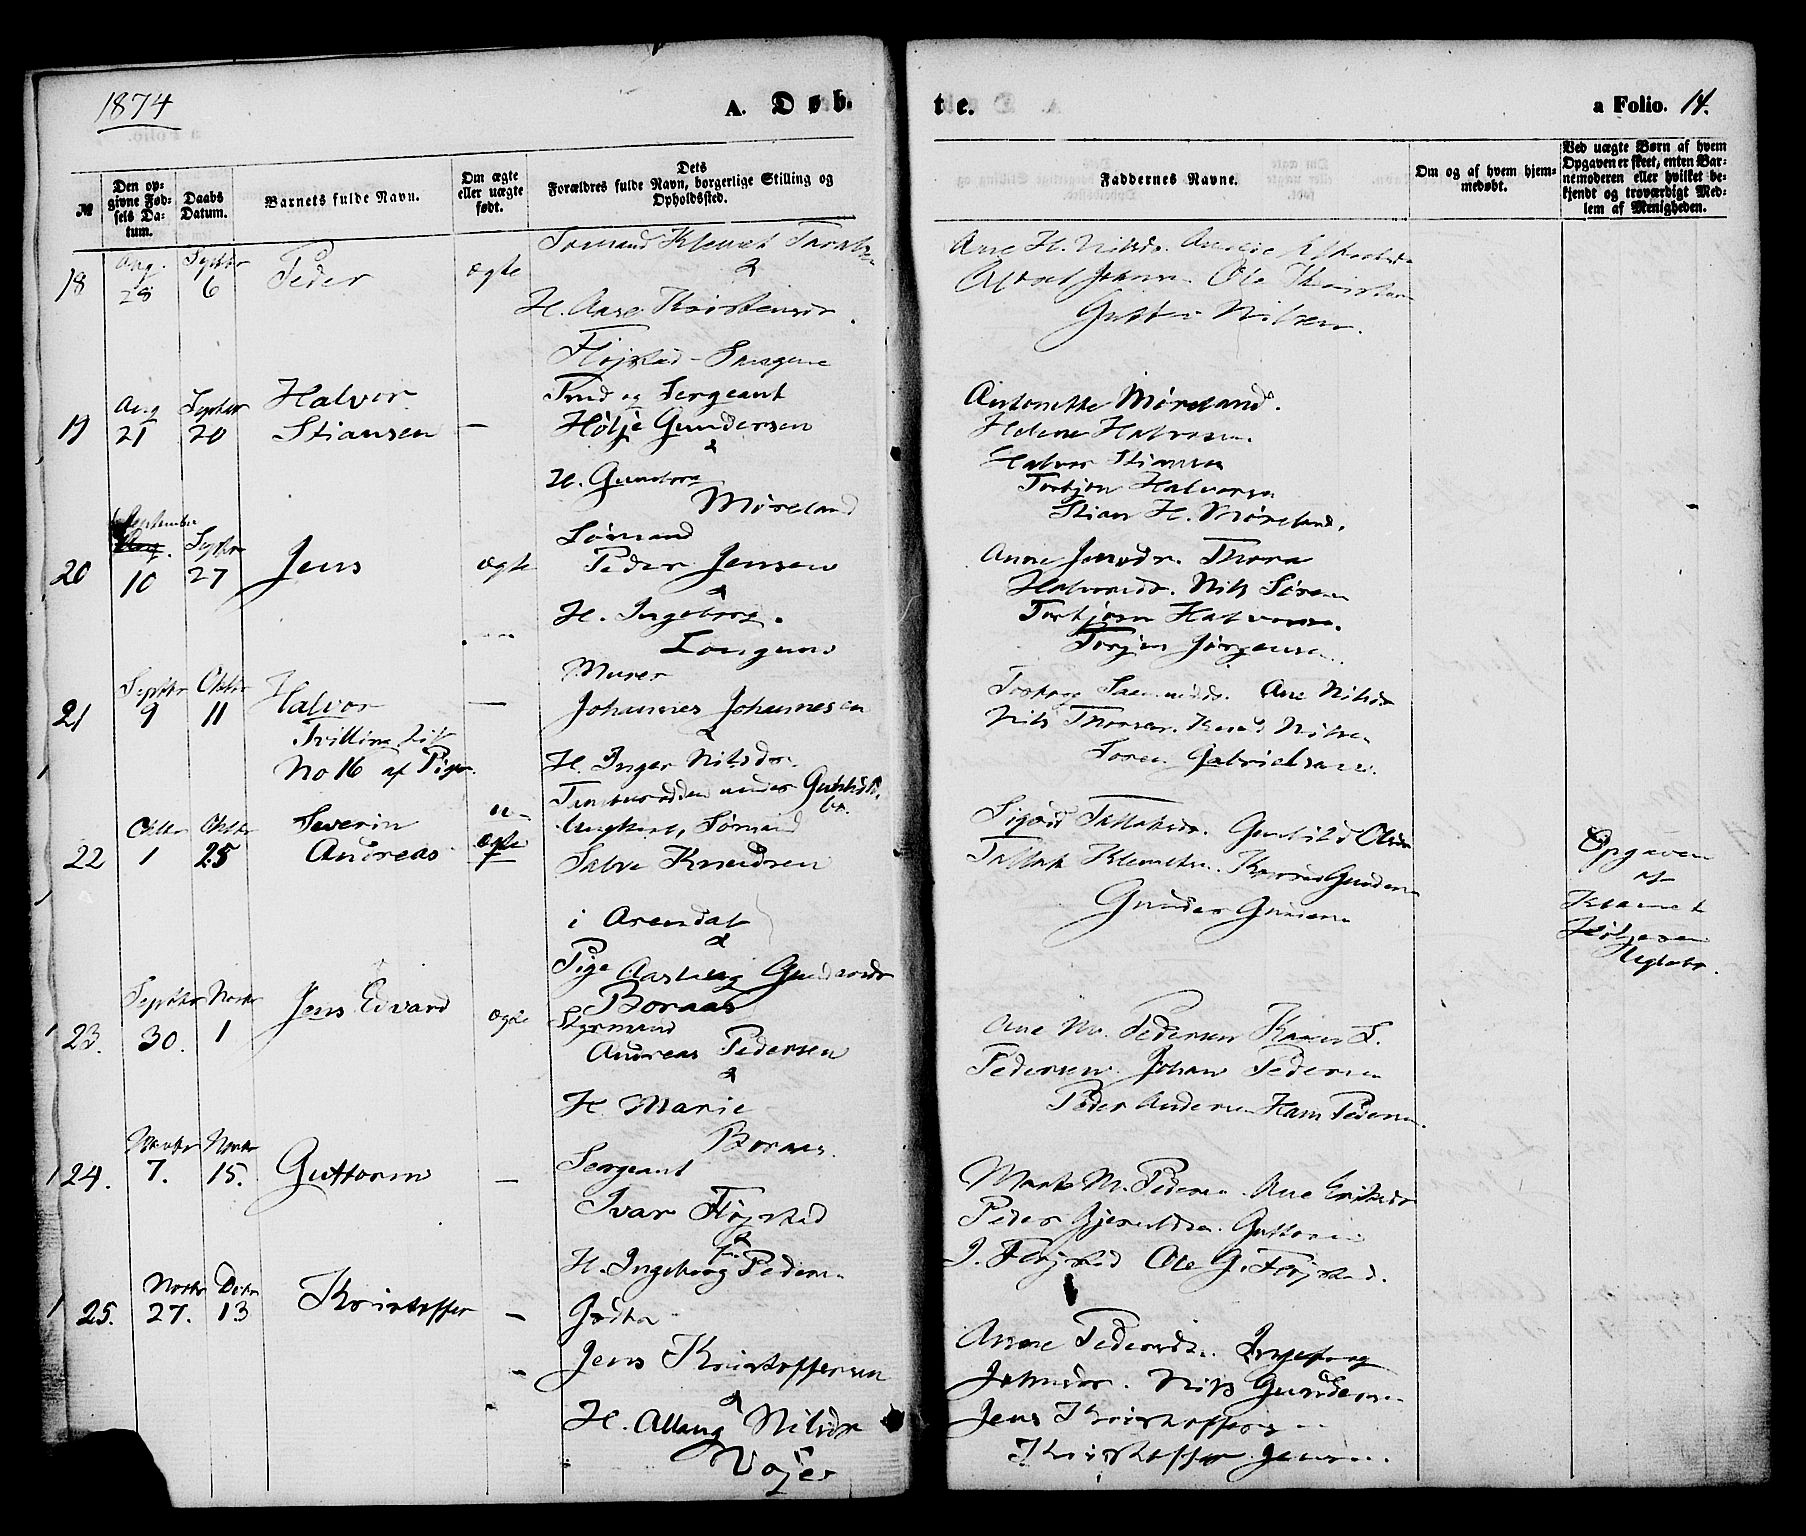 1874
A. Døb-
te.
a Folio. 14.
№
Den op-
givne Fød-
sels Da-
tum.
Daabs
Datum.
Barnets fulde Navn.
Om ægte
eller uægte
født.
Dets
Forældres fulde Navn, borgerlige Stilling og
Opholdssted.
Faddernes Navne.
Om og af hvem hjem-
medøbt.
Ved uægte Børn af hvem
Opgaven er skeet, enten Bar-
nemoderen eller hvilket be-
kjendt og troværdigt Med-
lem af Menigheden.
18
Aug.
28
Septbr
6
Peder
ægte
Sømand Klemet
&
H. Aase Kristensdr.
Fløjstad
Ane H. Nilsdr.
Ole
Nilsen.
19
Aug
21
Septbr
20
Halvor
Stiansen
—
Frud og Sergeant
Hølje Gundersen
&
H. Gunborg
Møreland
Antonette Møreland.
Helene Halvorsen.
Halvor Stiansen
Torbjørn Halvorsen
Stian H. Møreland.
20
September
Aug.
10
Septbr
27
Jens
ægte
Sømand
Peder Jensen
&
H. Ingeborg.
Longum
Anne Jensdr. Thora
Halvorsdr. Nils Søren
Torbjørn Halvorsen.
Torjus Jørgensen.
21
Septbr
9
Oktbr
11
Halvor
Tvilling til
No 16 af Piger.
—
Murer
Johannes Johannesen
&
H. Inger Nilsdr.
under
Ane Nilsdr
Nils Knud Nilsen
Søren Gabrielsen.
22
Oktbr
1
Oktbr
25
Severin
Andreas
u-
ægte
Ungkarl, Sømand
Salve Knudsen
i Arendal
&
Pige Aasberg Gundersdr
Boraas
Sigrid Tallaksdr. Gunhild Olsdr
Tallak Klemetsen. Gundersen
Gunder Gundersen
Opgaven
af
Klemet
Høljesen
23.
Septbr
30.
Novbr
1
Jens Edvard
ægte
Styrmand
Andreas Pedersen
&
H. Marie
Boraas.
Ane M. Pedersen Karen S.
Pedersen. Johan Pedersen
Peder Andersen Hans Pedersen.
24.
Novbr
7.
Novbr
15.
Guttorm
—
Sergeant
Ivar Fløjstad
&
H. Ingeborg Pedersen
M. Pedersen. Ane Eriksdr
Peder Gjeruldsen. Guttorm
J. Fløjstad Ole G. Fløjstad.
25.
Novbr
27.
Decbr
13
Kristoffer
—
Jens Kristoffersen
&
H. Allaug Nilsdr
Vøjer
Anne Pedersdr. Ingeborg
Johnsdr. Nils Gundersen.
Jens Kristoffersen
Kristoffer Jensen.